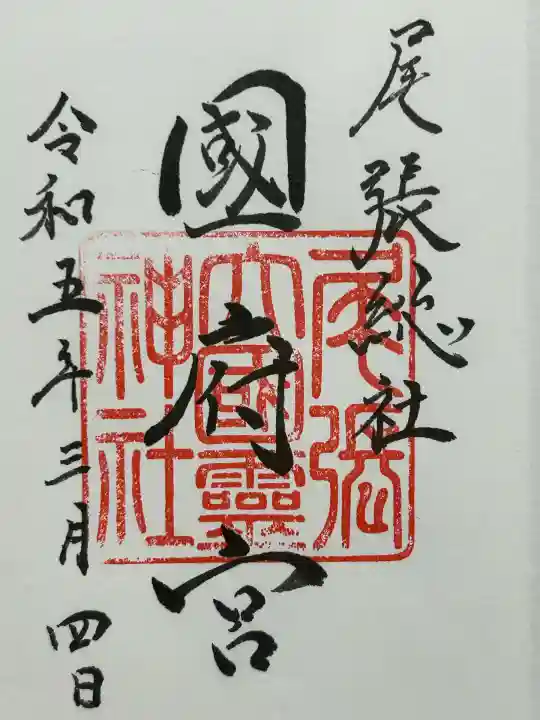 尾張総社
國府宮
令和五年三月四日
尾張
大國霊
神社